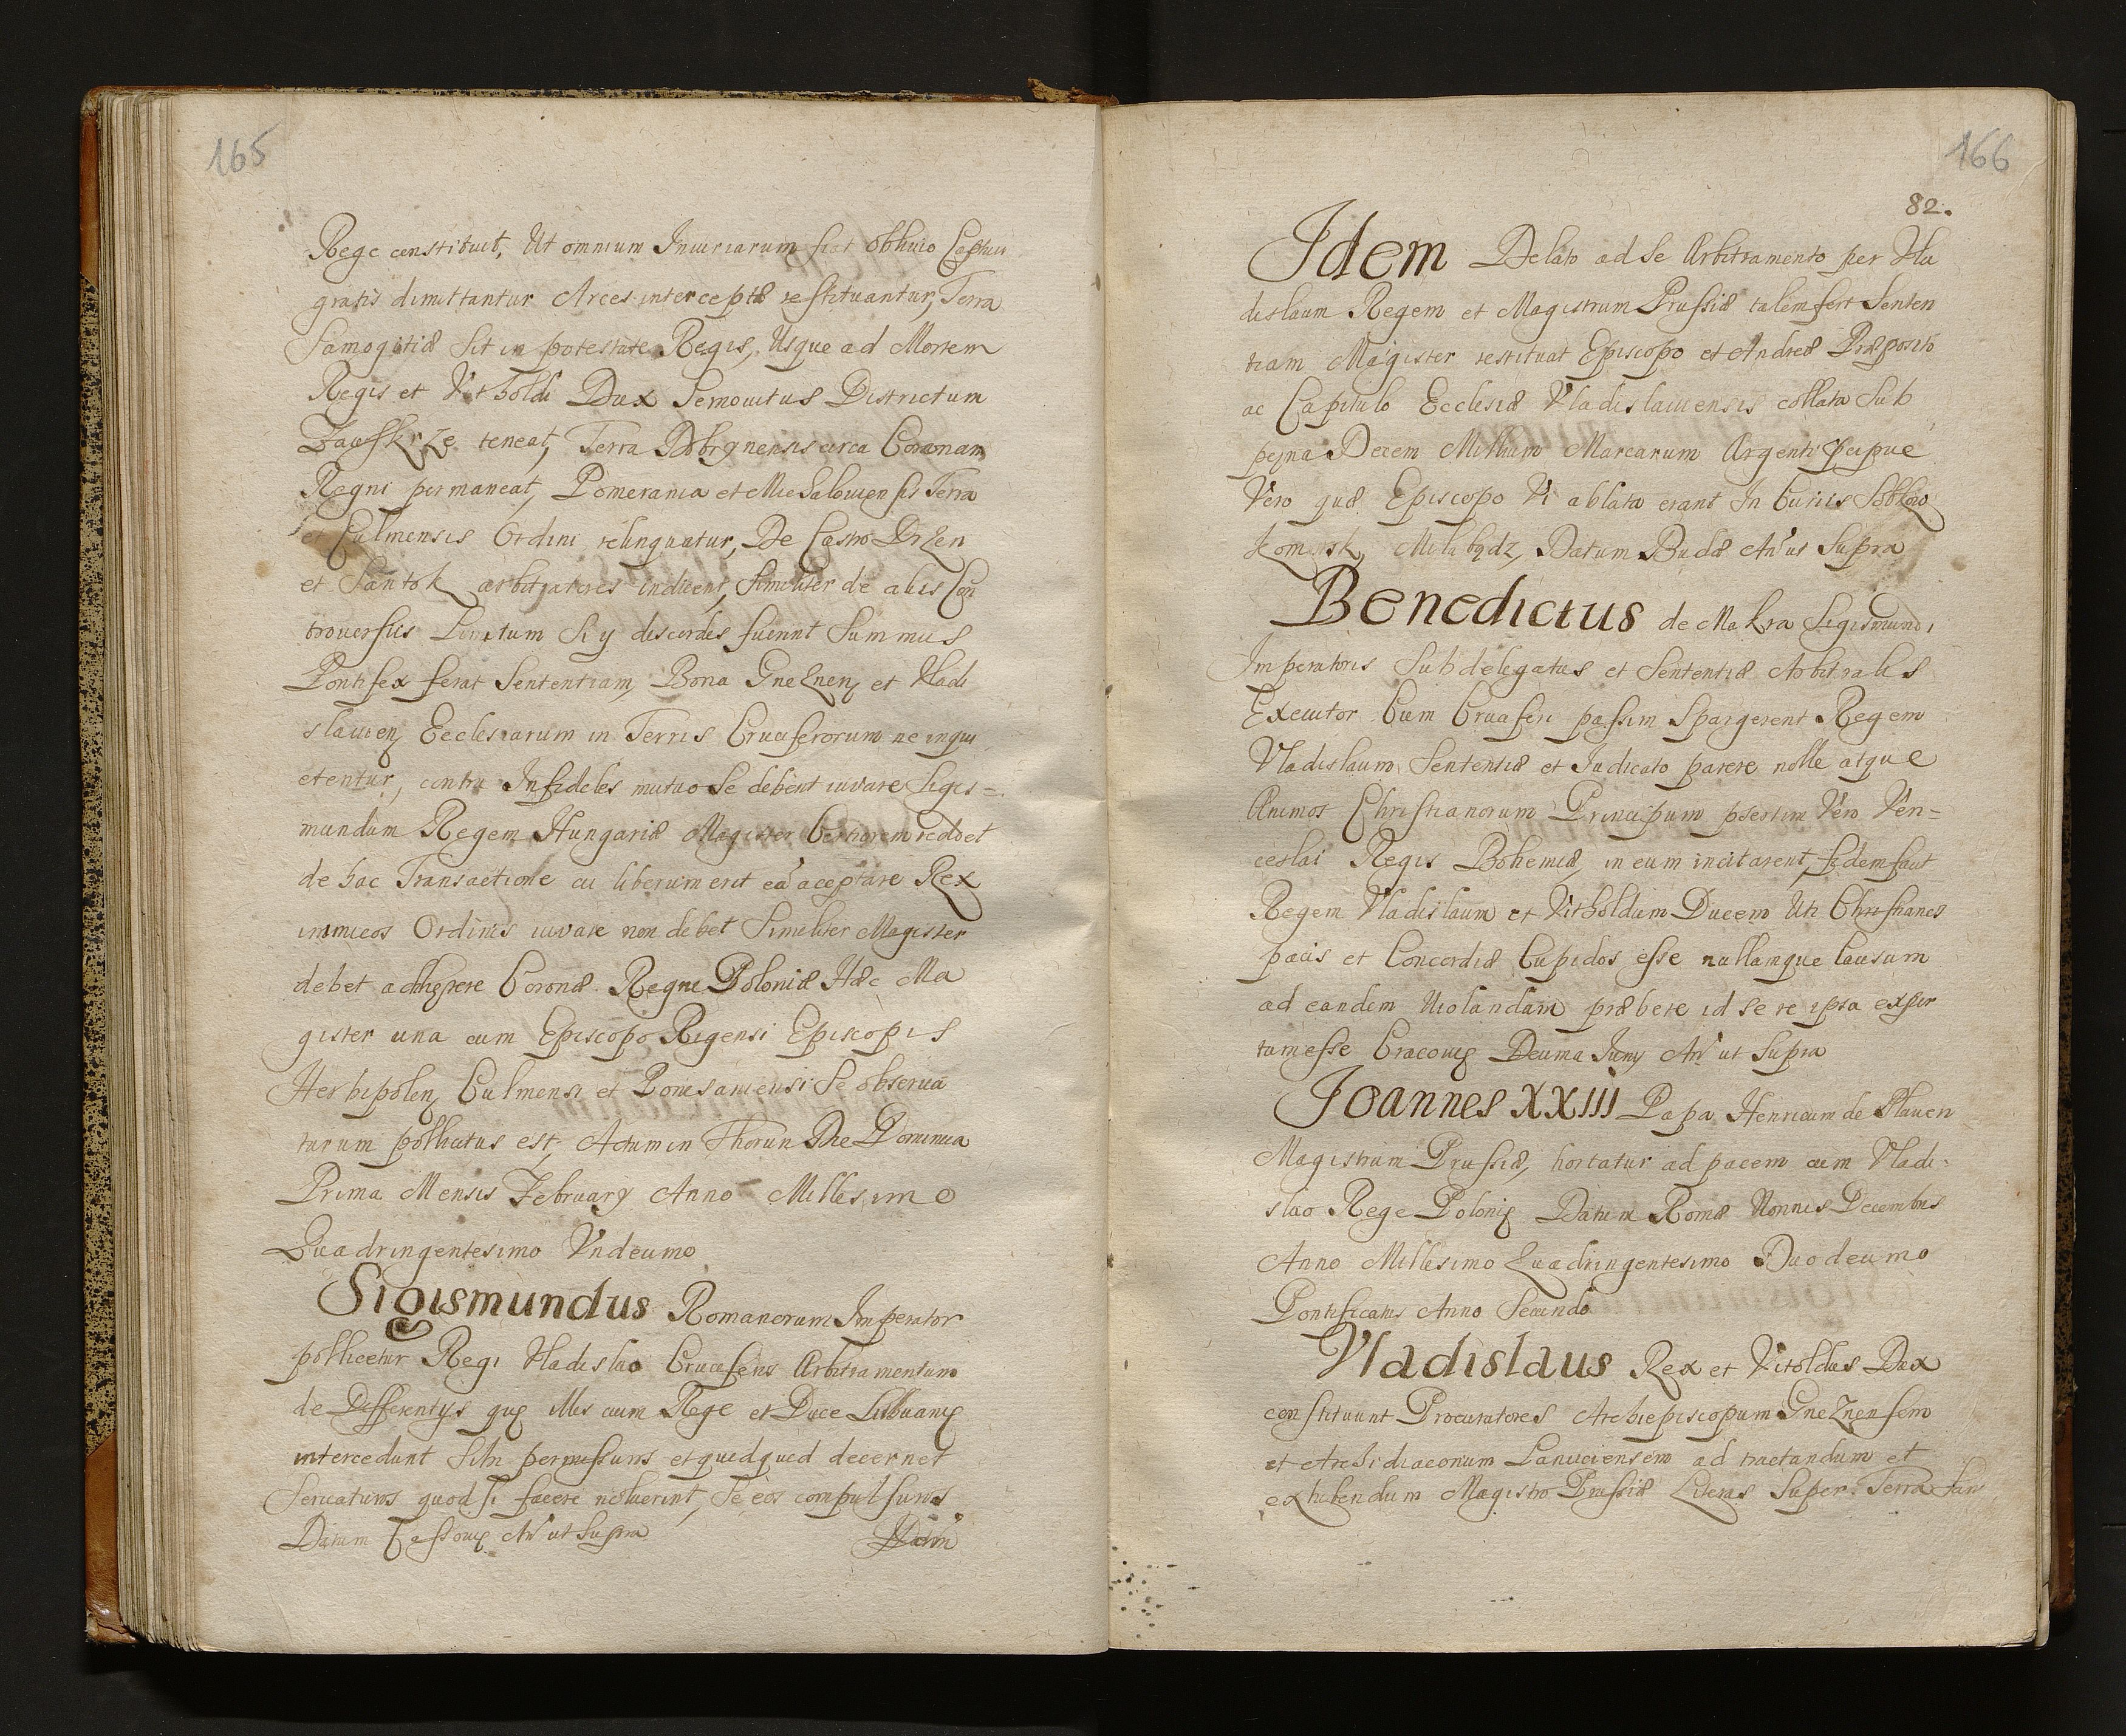 165
Rege constituit, Ut omnium Iniuriarum fiat oblivio Captivi
gratis dimittantur Arces interceptæ restituantur, Terra
Samogitiæ Sit in potestate Regis, Usque ad Mortem
Regis et Vitholdi Dux Semovitus Districtum
Zawskrze teneat, Terra Dobrynensis circa Coronam
Regni permaneat, Pomerania et Michaloviensis Terra
et Culmensis Ordini relinquatur, De Castro Drzen
et Santok arbitratores iudicent, Similiter de aliis Con
troversiis Limitum Si y discordes fuerint Summus
Pontifex ferat Sententiam, Bona Gneznen et Vladi
slavien Ecclesiarum in Terris Cruciferorum ne inqui
etentur, contra Infideles mutuo Se debent iuvare Sigis=
mundum Regem Hungariæ Magister Certiorem reddet
de hac Transactione cui liberum erit eā aceptare Rex
inimicos Ordinis iuvare non debet Similiter Magister
debet adhęrere Coronæ Regni Poloniæ Hæc Ma
gister una cum Episcopo Rigensi Episcopis
Herbipolen Culmensi et Pomesaniensi Se observa
turum pollicitus est, Actum in Thorun Die Dominica
Prima Mensis February Anno Millesimo
Quadringentesimo Undecimo
Sigismundus Romanorum Imperator
pollicetur Regi Vladislao Cruciferos Arbitramentum
de Differentys quę illis cum Rege et Duce Lithuanię
intercedunt Sibi permissuros et quidquid decernet
Servaturos quod si facere noluerint, Se eos compulsurum
Datum Cassovię Aº ut Supra
Datum
166
82.
Idem Delato ad Se Arbitramento per Vla
dislaum Regem et Magistrum Prussiæ talem fert Senten
tiam Magister restituat Episcopo et Andreæ Præposito
ac Capitulo Ecclesiæ Vladislaviensis collata Sub
pęna Decem Millium Marcarum Argenti
Vero quæ Episcopo Vi ablata erant In Curiis
Milobądz, Datum Budæ Aº ut Supra
Benedictus de Makra Sigismundi
Imperatoris Subdelegatus et Sententiæ Arbitralis
Executor Cum Cruciferi passim Spargerent Regem
Vladislaum Sententiæ et Iudicato parere nolle atque
Animos Christianorum Principum Vero Ven=
ceslai Regis Bohemiæ, in eum incitarent, fidem facit
Regem Vladislaum et Vitholdum Ducem Uti Christianos
pacis et Concordiæ Cupidos esse nullamque Causam
ad eandem Violandam præbere id Se re ipsa exper
tum esse Cracovię Decima Iuny Aº ut Supra
Ioannes XXIII Papa Henricum de Plauen
Magistrum Prussiæ, hortatur ad pacem cum Vladi=
slao Rege Polonię Datum Romæ Nonnis Decembris
Anno Millesimo Quadringentesimo Duodecimo
Pontificatus Anno Secundo
Vladislaus Rex et Vitoldus Dux
constituunt Procuratores Archiepiscopum Gneznensem
et Archidiaconum Lanciciensem ad tractandum et
exhibendum Magistro Prussiæ Literas Super Terra Sam